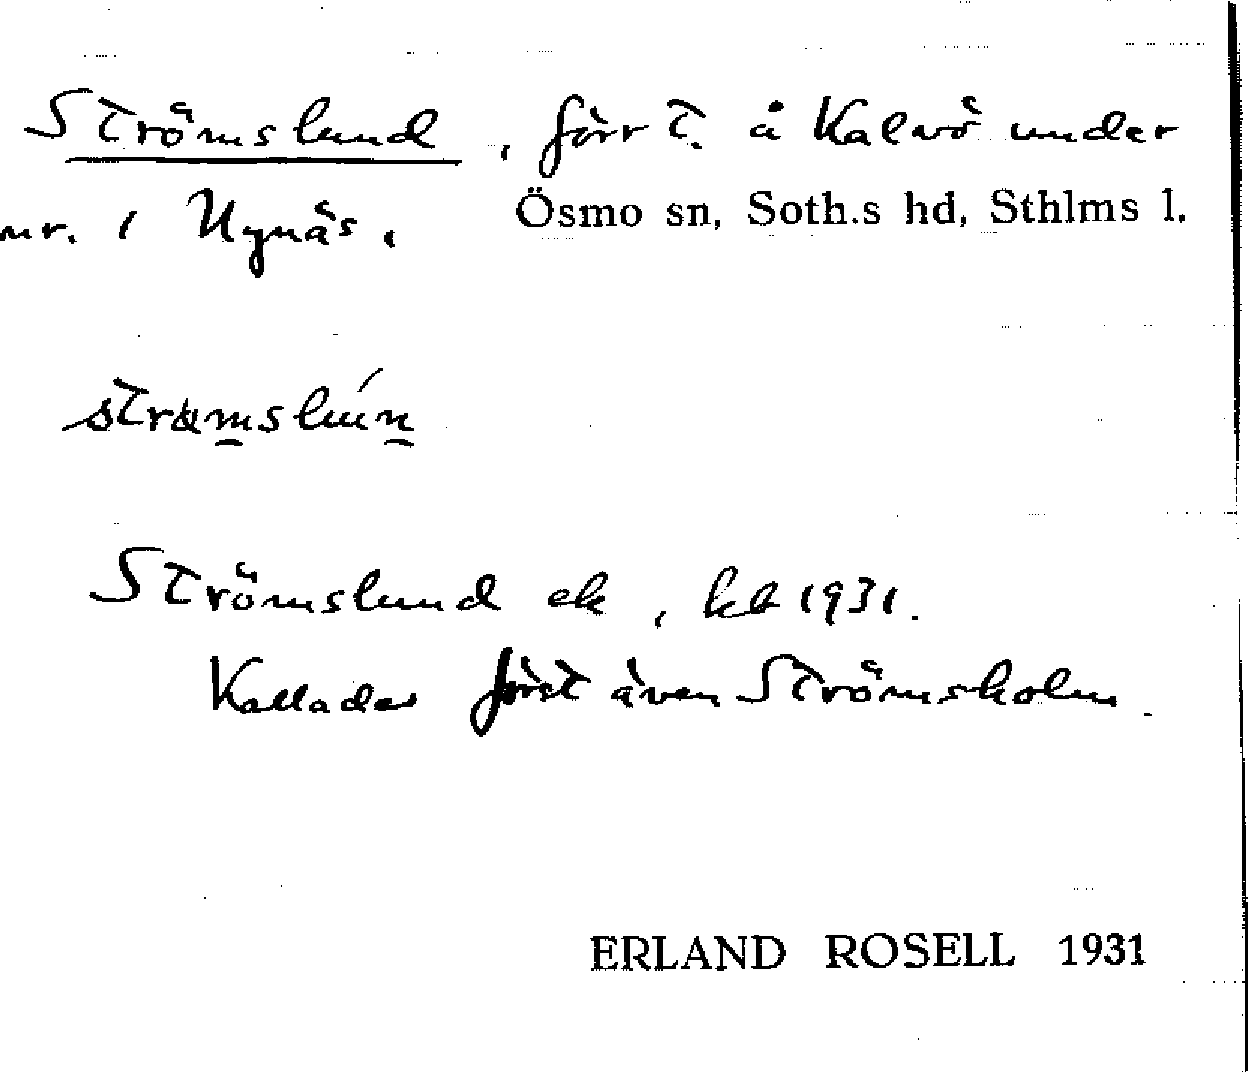 Strömslund, förr t. å Kalvö under
nr. 1 Nynäs, Ösmo sn, Soth.s hd, Sthlms l.
strømslún
Strömslund ek, kb 1931.
Kallades först även Strömsholm.
ERLAND ROSELL 1931